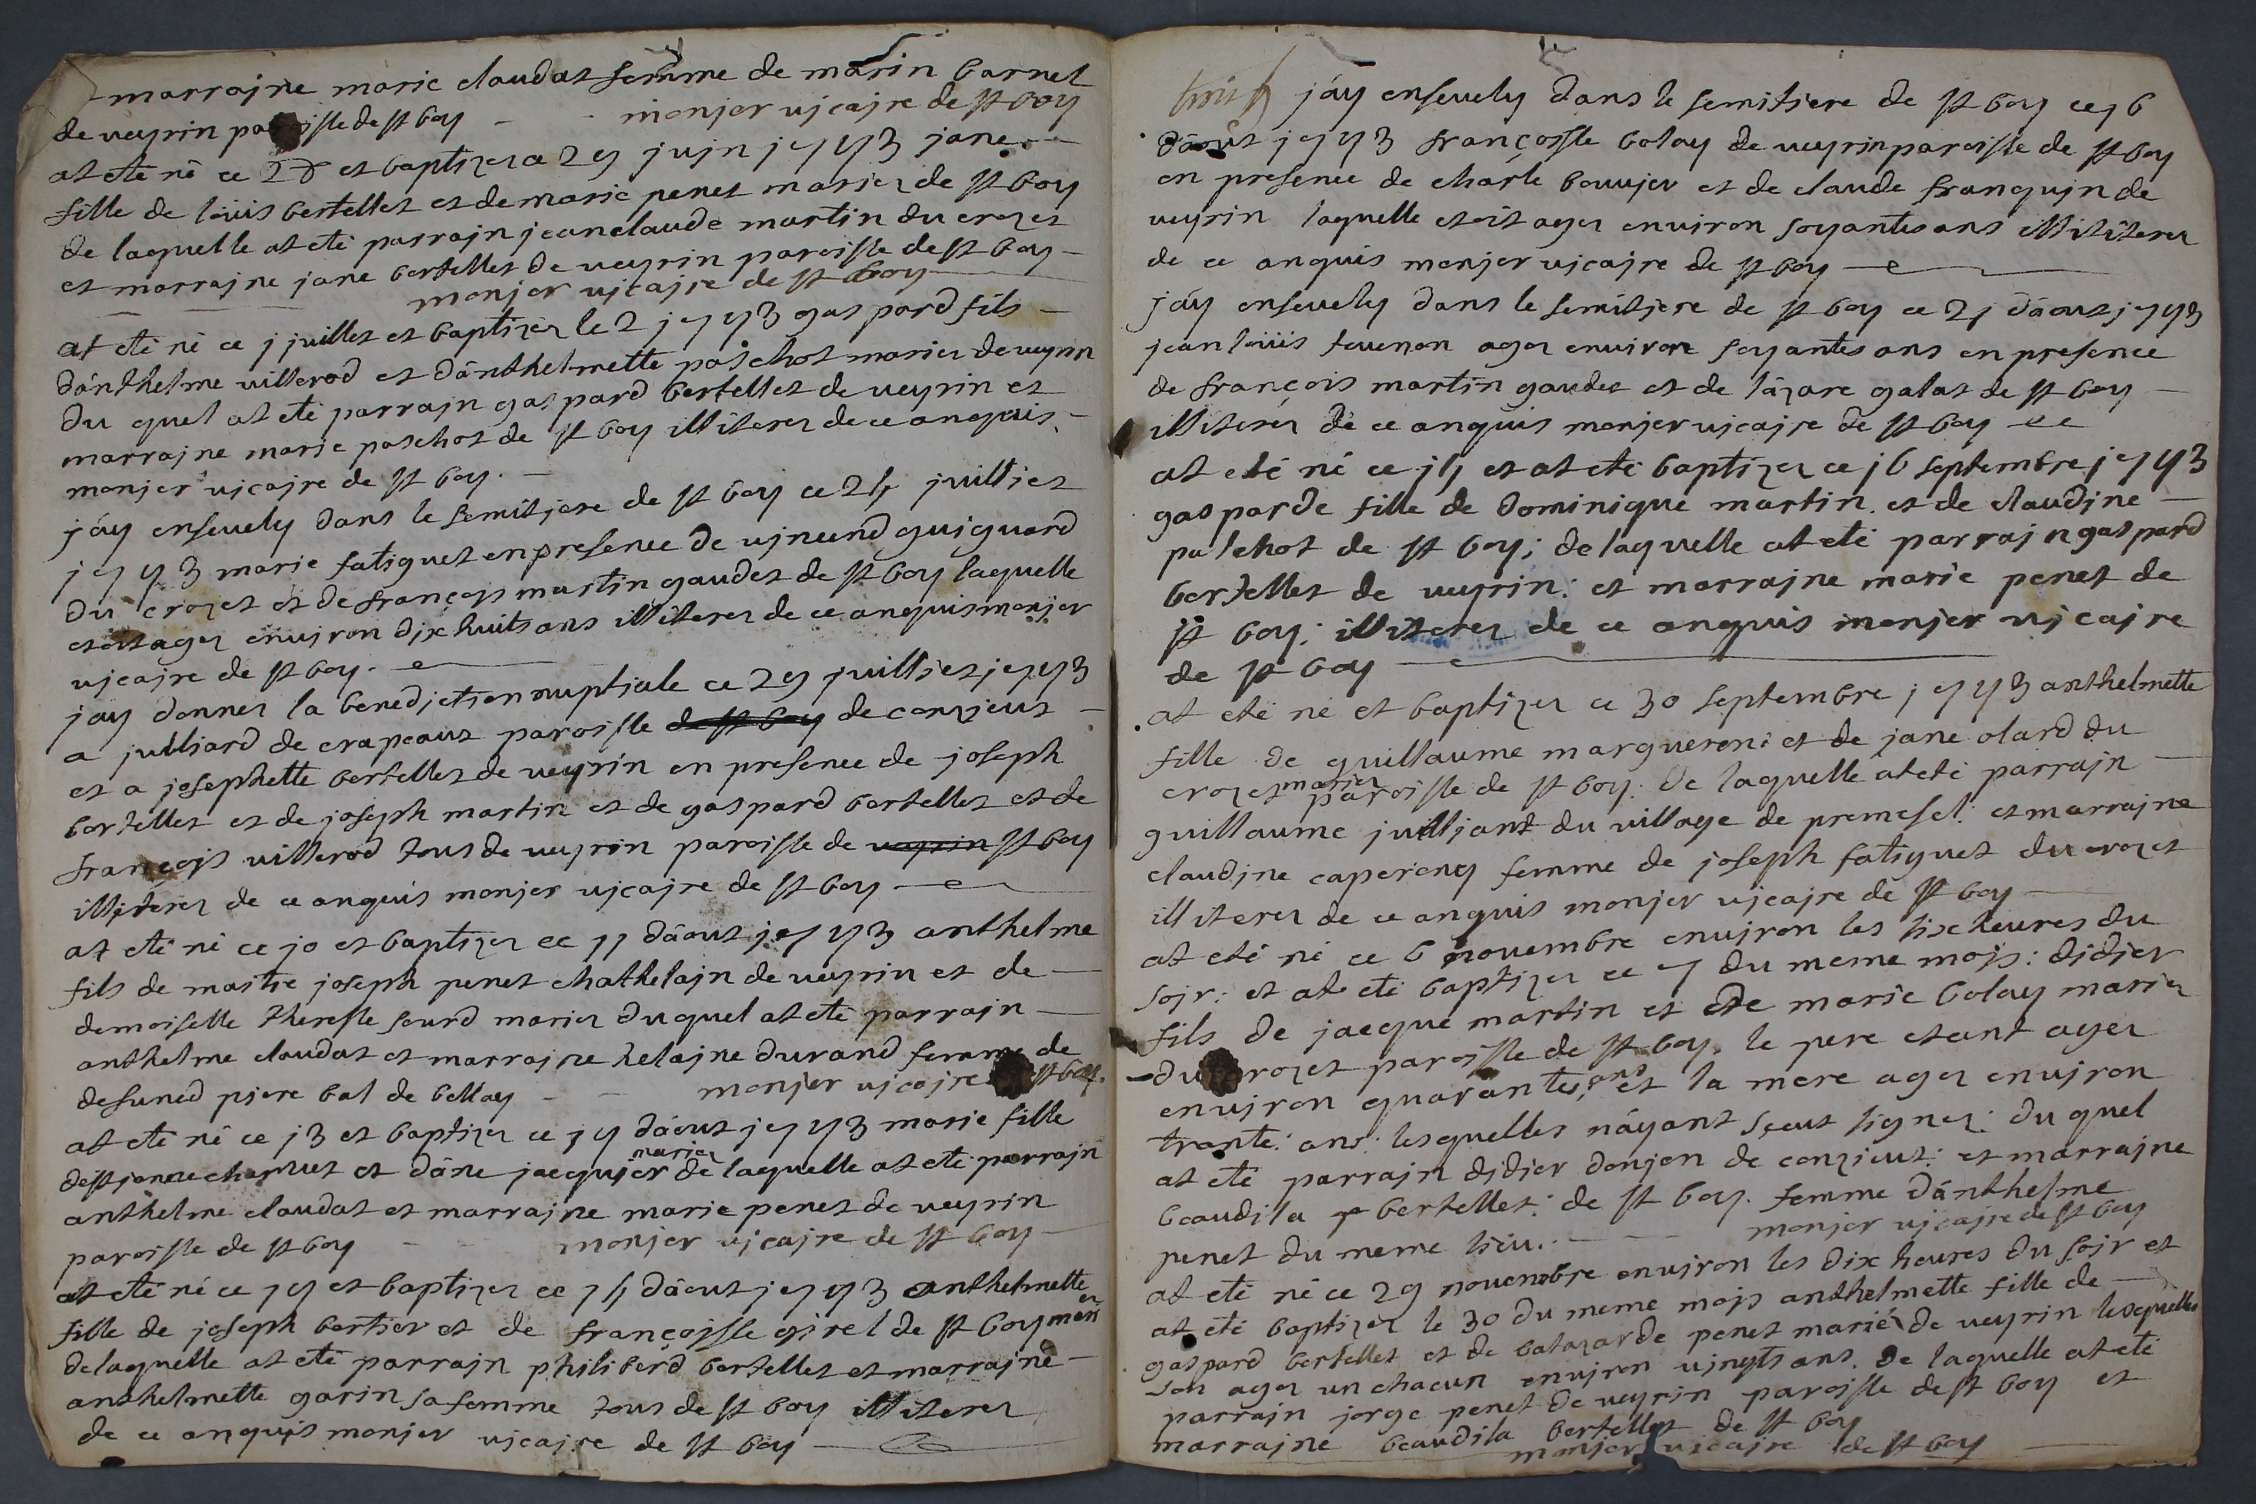 marrajne marie claudat femme de marin barnet
de veyrin paroisse de st boy - - monjer vjcajre de st boy
at ete né ce 28 et baptizez a 29 jujn j773 jane
fille de loüis bertellet et de marie penet mariez de st boy
de laquelle at eté parrajn jean claude martin du crozet
et marrajne jane bertellet de veyrin paroisse de st boy -
monjer vjcajre de st boy
at eté né ce j juillet et baptizez le 2 j773 gaspard fils -
dánthelme villerod et dânthelmette paschot mariez de veyrin
du quel at eté parrajn gaspard bertellet de veyrin et
marrajne marie paschot de st boy illiterez de ce anquis -
monjer vjcajre de st boy. -
jáy ensevely dans le semitjere de st boy ce 24 juilljet
j773 marie fatiguet en presence de vjncend guiguard
du crozet et de françojs martin gaudet de st boy laquelle
etoit agez envjron dix huits ans illiterez de ce anquis monjer
vjcajre de st boy.
jay donnez la benedjction nuptjale ce 29 juilljet j773
a julljard de crapeaut paroisse de st boy de conzieut -
et a josephette bertellet de veyrin en presence de joseph
bertellet et de joseph martin et de gaspard bertellet et de
françojs villerod tous de veyrin paroisse de veyrin st boy
illiterez de ce anquis monjer vjcajre de st boy
at eté né ce j0 et baptizez ce jj dâout j773 anthelme
fils de maitre joseph penet chathelajn de veyrin et de -
demoiselle theresse sourd mariez du quel at eté parrajn -
anthelme claudat et marrajne helajne durand femme de
defuned pjere bal de bellay - - monjer vjcajre st boy.
at eté né ce j3 et baptizez ce j4 dáout j773 marie fille
destjenne chaptut et dâne jacqujer mariez de laquelle at eté parrajn
anthelme claudat et marrajne marie penet de veyrin
paroisse de st boy - - monjer vjcajre de st boy -
at eté né ce j4 et baptizez ce j5 dâout j773 anthelmette
fille de joseph bertier et de françoisse girel de st boy mariez
de laquelle at eté parrajn philiberd bertellet et marrajne -
anthelmette garin sa femme tous de st boy illiterez
de ce anquis monjer vjcajre de st boy
jáy ensevely dans le semitjere de st boy ce j6
dáout j773 françoisse bolay de veyrin paroisse de st boy
en presence de charle bouvjer et de claude franquin de
veyrin laquelle etoit agez environ soyantes ans illitterez
de ce anquis monjer vjcajre de st boy
jáy ensevely dans le semitjere de st boy ce 2j dâout j773
jean loüis tevenon agez environ soyantes ans en presence
de françois martin gaudet et de lázare galat de st boy -
illiterez de ce anquis monjer vjcajre de st boy
at eté né ce j5 et at eté baptizez ce j6 septembre j773
gasparde fille de dominique martin et de claudjne -
paschot de st boy; de laquelle at eté parrajn gaspard
bertellet de veyrin: et marrajne marie penet de
st boy: illiterez de ce anquis monjer vjcajre
de st boy
at eté né et baptizez ce 30 septembre j773 anthelmette
fille de guillaume margueron: et de jane olard du
crozet mariez paroisse de st boy: de laquelle at eté parrajn -
guillaume juilljant du village de premesel: et marrajne
claudjne caperony femme de joseph fatiguet du crozet
illiterez de ce anquis monjer vjcajre de st boy
at eté né ce 6 novembre environ les six heures du
sojr: et at eté baptizez ce 7 du meme mojs: didjer
fils de jacque martin et de marie bolay mariez
du crozet paroisse de st boy. le pere etant agez
envjron quarantes ans et la mere agez environ
trante: ans: lesquelles náyant sçeut signez: du quel
at eté parrajn didjer donjon de conzieut: et marrajne
beaudila bertellet: de st boy. femme dánthelme
penet du meme lieu. - - monjer vjcajre de st boy
at eté né ce 29 novembre envjron les dix heures du sojr et
at eté baptizez le 30 du meme mojs anthelmette fille de -
gaspard bertellet et de balazarde penet mariéz de veyrin lesquelles
son agez un chacun environ vjngts ans. de laquelle at eté
parrajn jorge penet de veyrin paroisse de st boy et
marrajne beaudila bertellet de st boy
monjer vjcajre de st boy